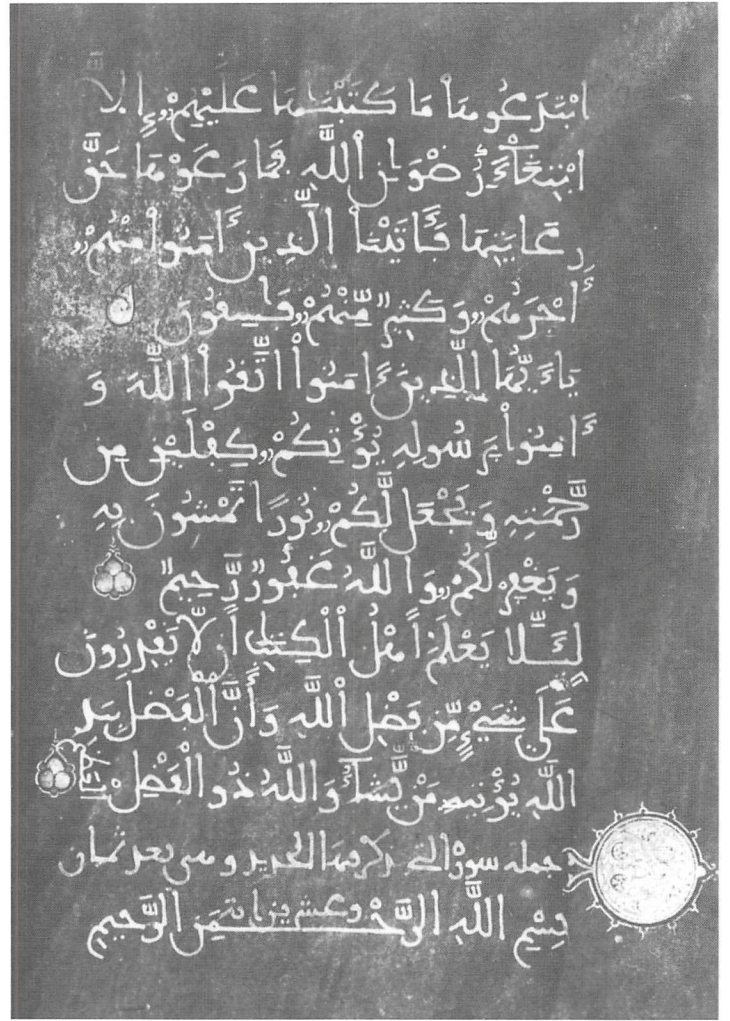 ابْتَدَعُوهَا مَا كَتَبْنَـٰهَا عَلَيْهِمُۥٓ إِلَّا
ابْتِغَآءَ رِضْوَٰنِ اللَّهِ فَمَا رَعَوْهَا حَقَّ
رِعَايَتِهَا فَـَٔاتَيْنَا الَّذِينَ ءَامَنُواْ مِنْهُمُۥٓ
أَجْرَهُمْ وَكَثِيرٌ مِّنْهُمْ فَـٰسِقُونَ
يَـٰأَيُّهَا الَّذِينَ ءَامَنُواْ اتَّقُواْ اللَّهَ وَ
ءَامِنُواْ بِرَسُولِهِ يُؤْتِكُمْ كِفْلَيْنِ مِن
رَّحْمَتِهِ وَيَجْعَل لَّكُمْ نُورًا تَمْشُونَ بِهِ
وَيَغْفِرْ لَكُمْ وَاللَّهُ غَفُورٌ رَّحِيمٌ
لِّئَلَّا يَعْلَمَ أَهْلُ الْكِتَـٰبِ أَن لَّا يَقْدِرُونَ
عَلَىٰ شَيْءٍ مِّن فَضْلِ اللَّهِ وَأَنَّ الْفَضْلَ بِيَدِ
اللَّهِ يُؤْتِيهِ مَنْ يَّشَآءُ وَاللَّهُ ذُو الْفَضْلِ
جملة سورة التي ذكر فيها الحديد وهي بعد ثمان
وعشرين اية
بِسْمِ اللَّهِ الرَّحْمَـٰنِ الرَّحِيمِ